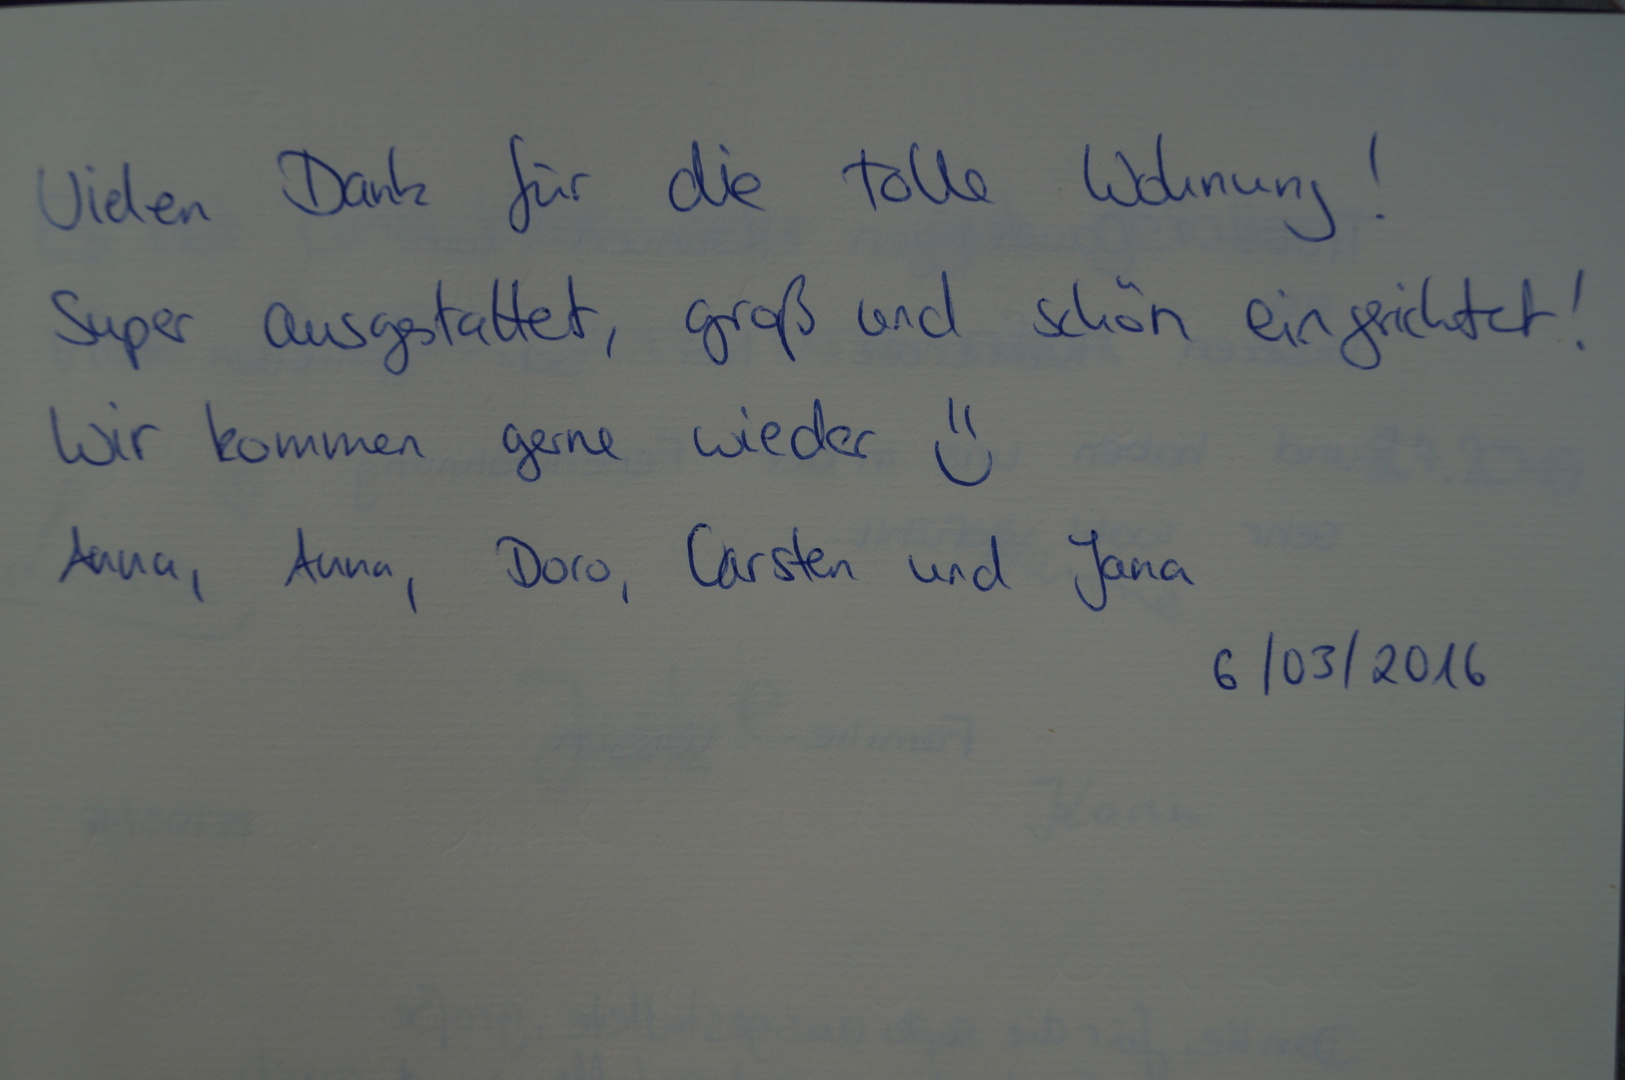 Vielen Dank für die tolle Wohnung!
Super ausgestattet, groß und schön eingerichtet!
Wir kommen gerne wieder
Anna, Anna, Doro, Carsten und Jana
6/03/2016